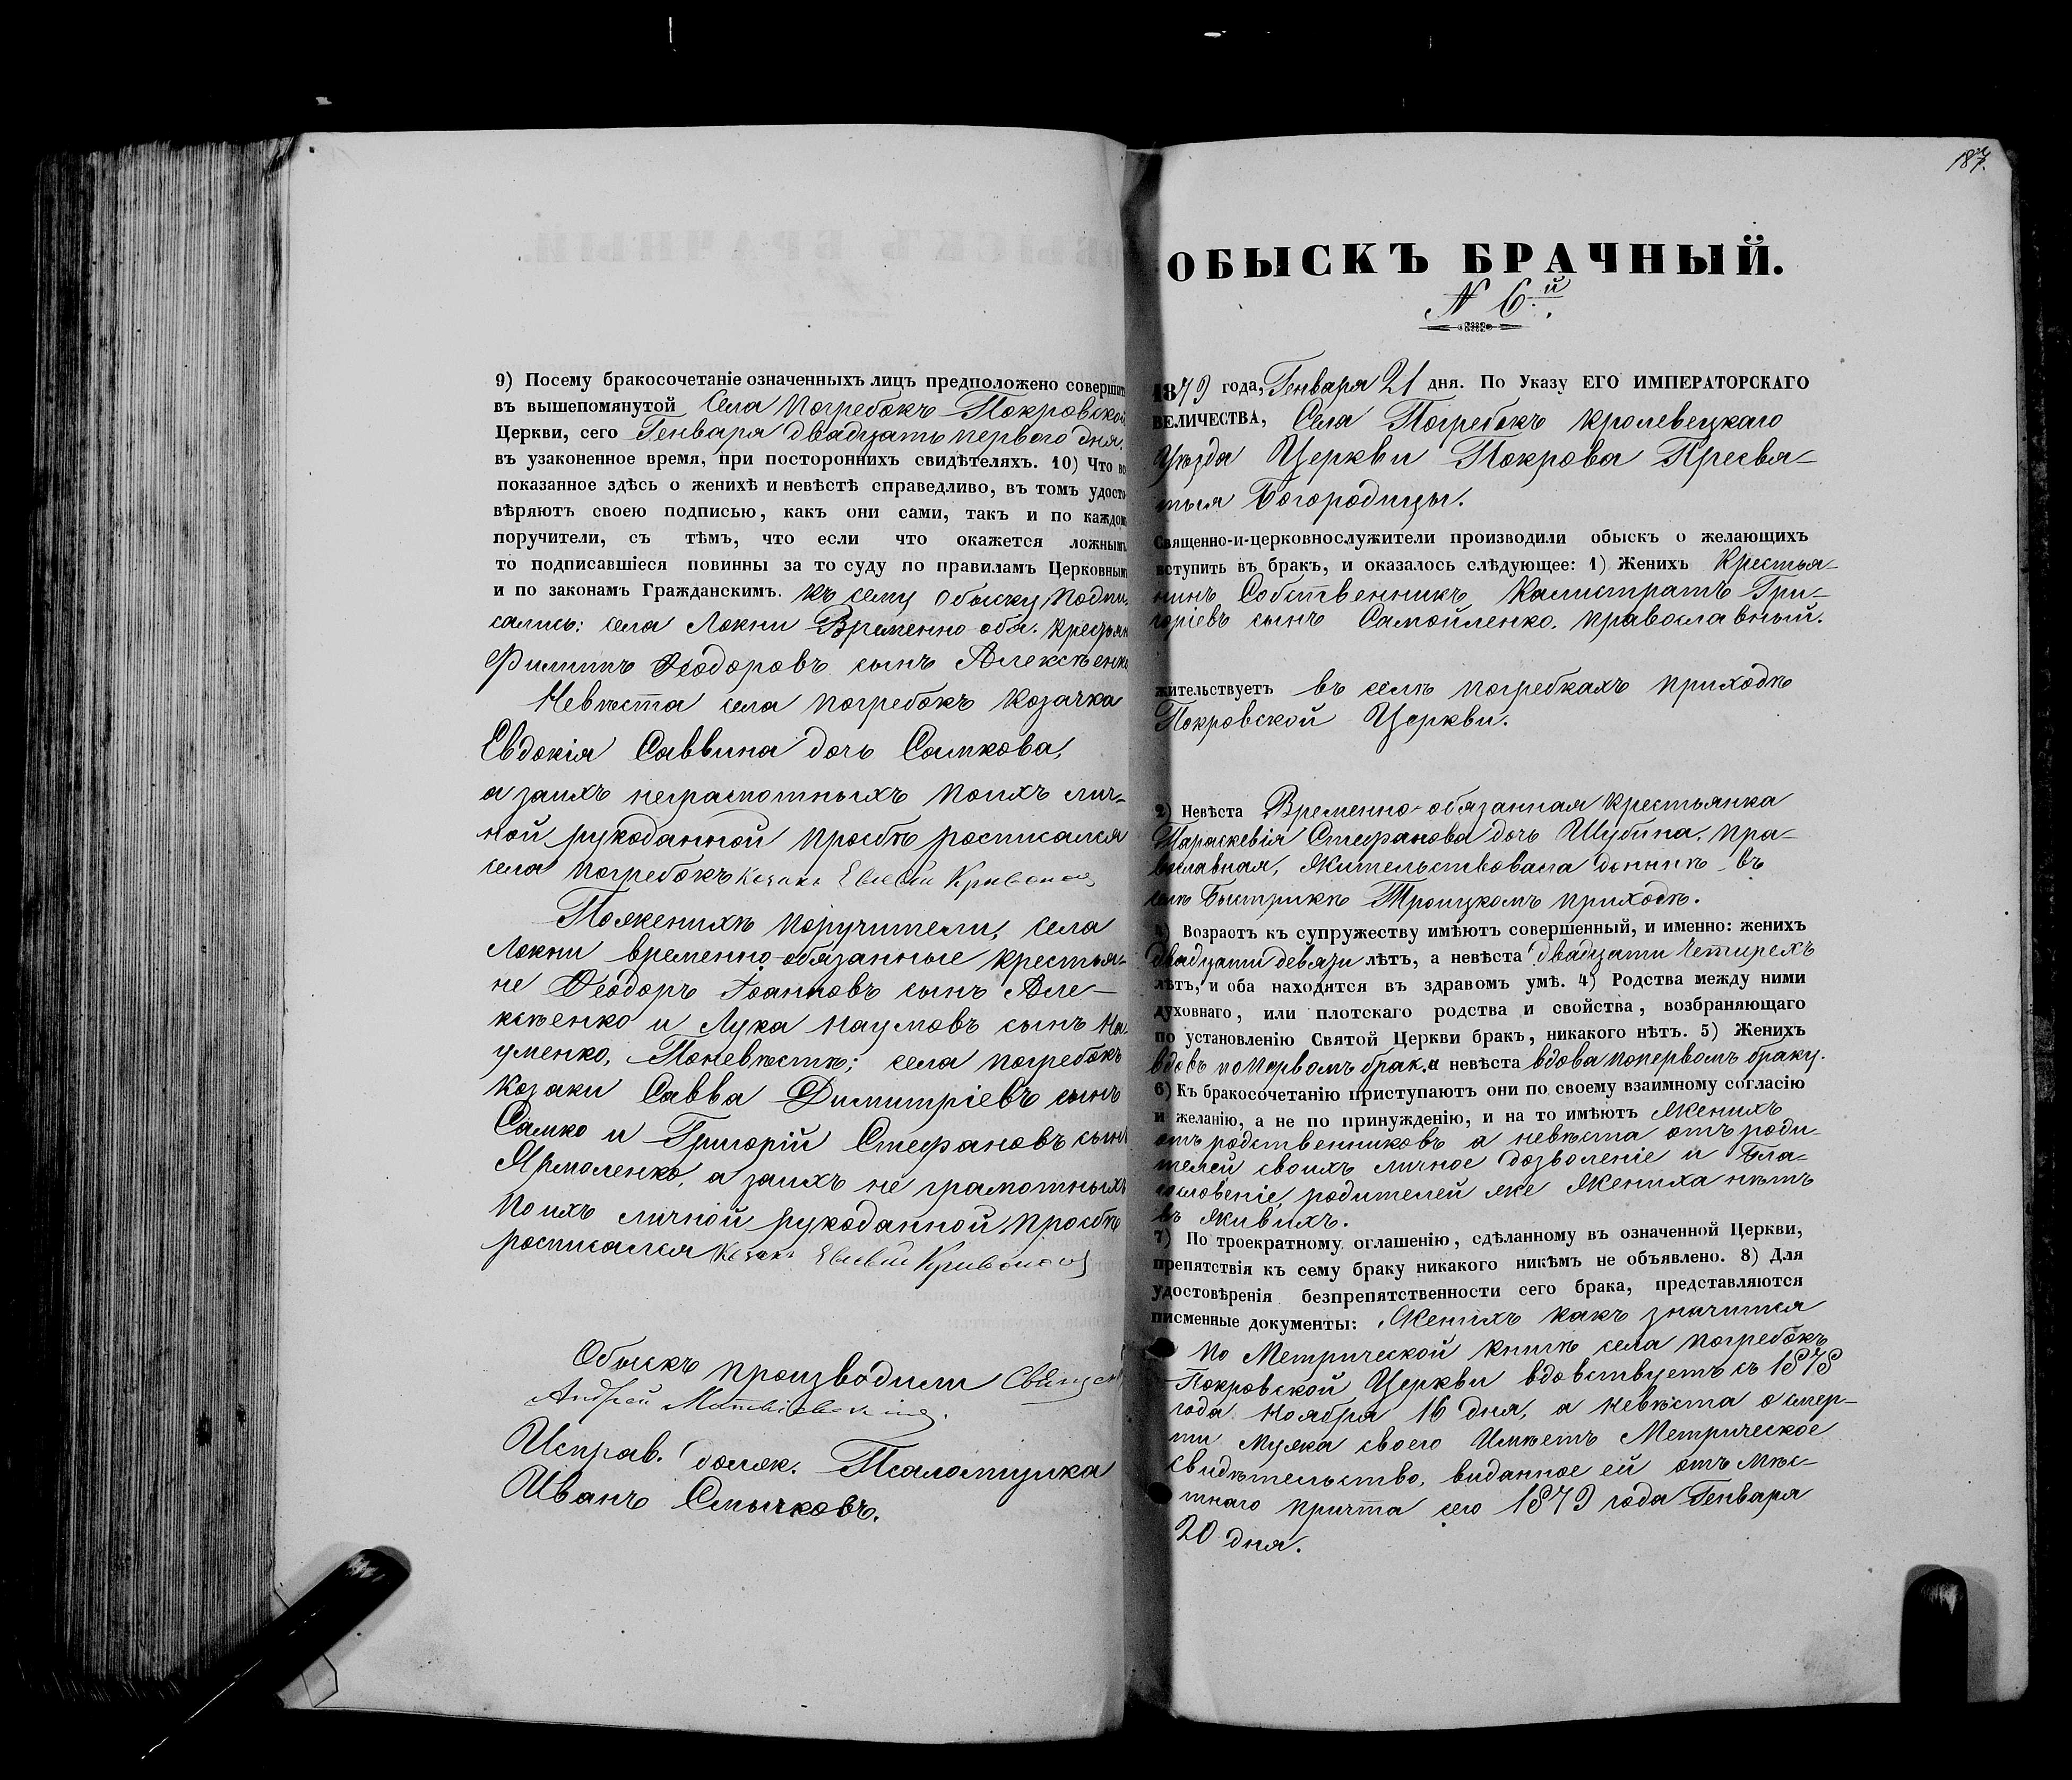 9) Посему бракосочетаніе означенныхъ лицъ предположено совершить
въ вышепомянутой Села Погребокъ Покровской
Церкви, сего Генваря двадцать перваго дня,
въ узаконенное время, при постороннихъ свидѣтеляхъ. 10) Что все
показанное здѣсь о женихѣ и невѣстѣ справедливо, въ томъ удосто-
вѣряютъ своею подписью, какъ они сами, такъ и по каждомъ
поручители, съ тѣмъ, что если что окажется ложнымъ
то подписавшіеся повинны за то суду по правиламъ Церковнымъ
и по законамъ Гражданскимъ. Къ сему обыску подпи-
сались: села Локни Временно-обя. крестьян
Филиппъ Ѳеодоровъ сынъ Алексѣенко
Невѣста села Погребокъ козачка
Евдокія Саввина дочь Самкова,
а заихъ неграмотныхъ поихъ лич-
ной рукоданной просбѣ росписался
села Погребокъ Козакъ Евсевій Кривоносъ
Поженихѣ поручители, села
Локни временно-обязанные крестья-
не Ѳеодоръ Іоанновъ сынъ Але-
ксѣенко и Лука Наумовъ сынъ На-
уменко, Поневѣстѣ; села Погребокъ
козаки Савва Димитріевъ сынъ
Самко и Григорій Стефановъ сынъ
Ярмоленко, а заихъ не грамотныхъ
поихъ личной рукоданной просбѣ
росписался Козакъ Евсевій Кривоносъ
Обыскъ производили Священ
Андрей
Исправ. долж. Псаломщика
Иванъ Смычковъ.
187.
ОБЫСКЪ БРАЧНЫЙ.
N 6й.
1879 года, Генваря 21 дня. По Указу ЕГО ИМПЕРАТОРСКАГО
ВЕЛИЧЕСТВА, Села Погребокъ Кролевецкаго
Уѣзда Церкви Покрова Пресвя-
тыя Богородицы.
Священно-и-церковнослужители производили обыскъ о желающихъ
вступить въ бракъ, и оказалось слѣдующее: 1) Женихъ Крестья-
нинъ Собственникъ Калистратъ Гри-
горіевъ сынъ Самойленко, православный.
жительствуетъ въ селѣ Погребкахъ приходѣ
Покровской Церкви.
2) Невѣста Временно-обязанная крестьянка
Параскевія Стефанова дочь Шубина, пра-
вославная, жительствовала донынѣ въ
селѣ Быстрикѣ Троицкомъ приходѣ.
3) Возрастъ къ супружеству имѣютъ совершенный, и именно: женихъ
двадцати девяти лѣтъ, а невѣста двадцати четирехъ
лѣтъ, и оба находятся въ здравомъ умѣ. 4) Родства между ними
духовнаго, или плотскаго родства и свойства, возбраняющаго
по установленію Святой Церкви бракъ, никакого нѣтъ. 5) Женихъ
вдовъ попервомъ брак. а невѣста вдова попервомъ браку.
6) Къ бракосочетанію приступаютъ они по своему взаимному согласію
и желанію, а не по принужденію, и на то имѣютъ Женихъ
отъ родственниковъ а невѣста отъ роди-
телей своихъ личное дозволеніе и бла-
гословеніе, родителей же Жениха нѣтъ
въ живихъ.
7) По троекратному оглашенію, сдѣланному въ означенной Церкви,
препятствія къ сему браку никакого никѣмъ не объявлено. 8) Для
удостовѣренія безпрепятственности сего брака, представляются
писменные документы: Женихъ какъ значится
по Метрической книгѣ села Погребокъ
Покровской Церкви вдовствуетъ съ 1878
года Ноября 16 дня, а невѣста о смер-
ти мужа своего Имѣетъ Метрическое
свидѣтельство, виданное ей отъ мѣс-
тнаго причта сего 1879 года Генваря
20 дня.